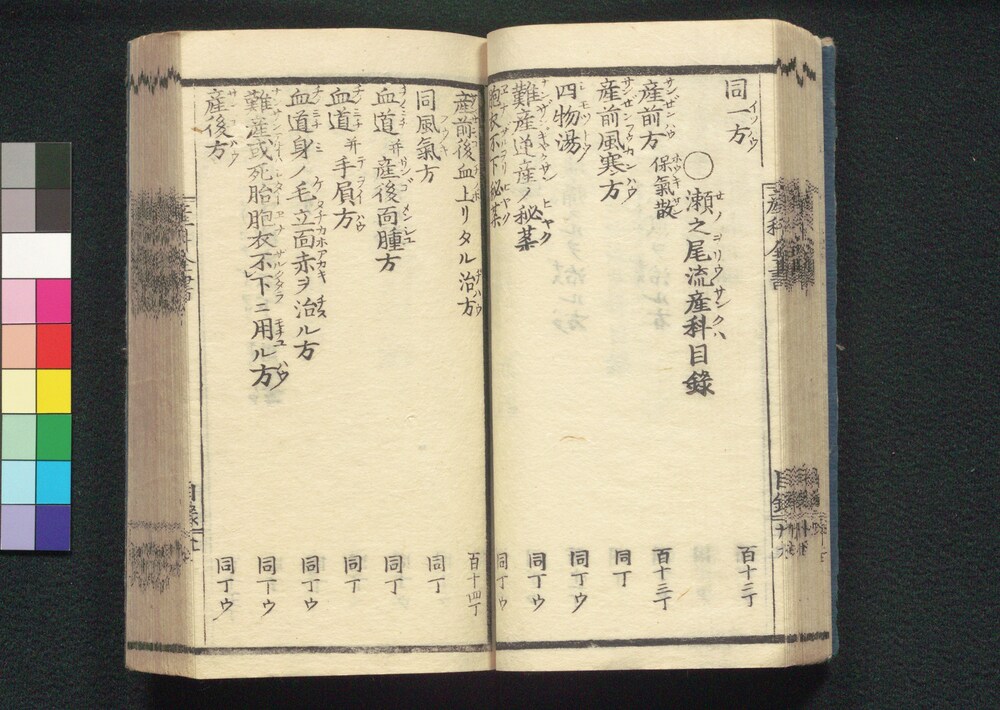 同一方 百十三丁
○瀬之尾流産科目録
産前方 保氣散 百十三丁
産前風寒方 同丁
四物湯 同丁ウ
難産逆産ノ秘薬 同丁ウ
胞衣不下秘薬 同丁ウ
産前後血上リタル治方 百十四丁
同風氣方 同丁
血道并産後面腫方 同丁
血道并手屓方 同丁
血道身ノ毛立面赤ヲ治ル方 同丁ウ
難産或死胎胞衣不下ニ用ル方 同丁ウ
産後方 同丁ウ
産科全書
目録